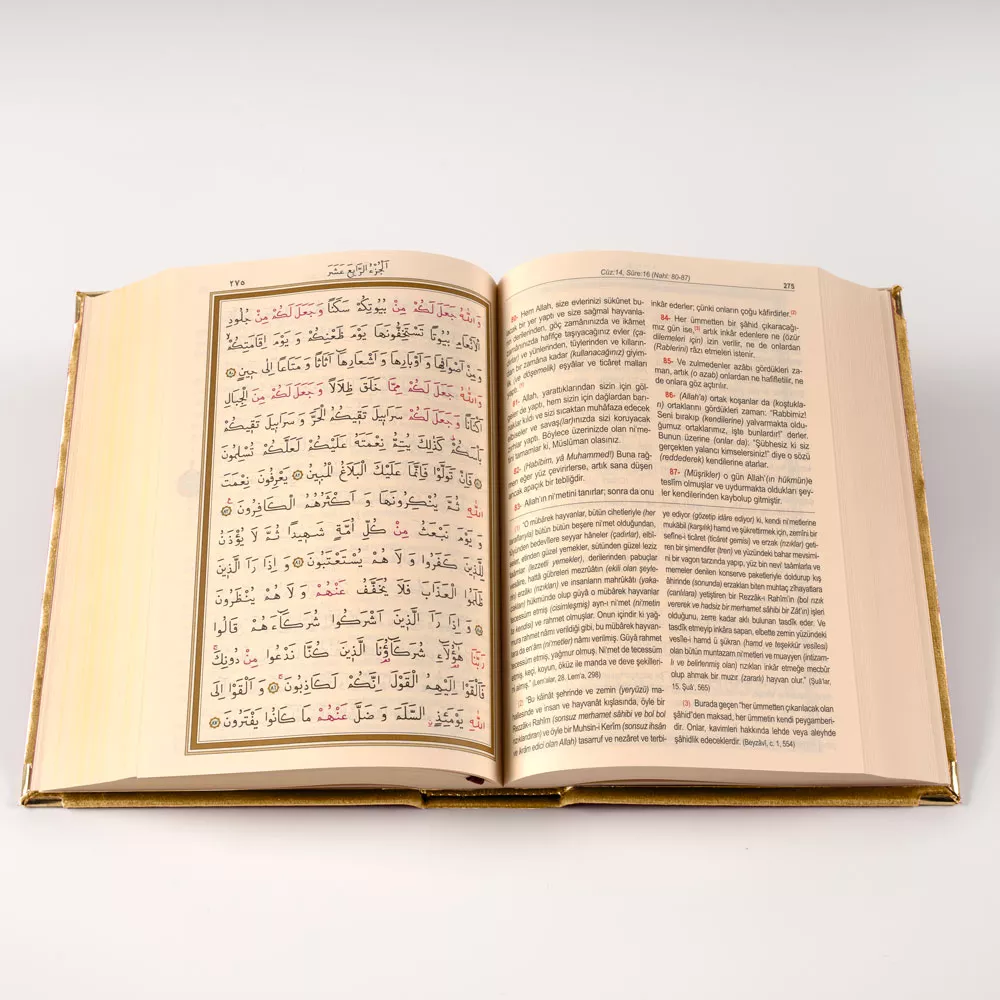 ٢٧٥
اَلْجُزْءُ الرَّابِعَ عَشَرَ
وَاللّٰهُ جَعَلَ لَكُمْ مِنْ بُيُوتِكُمْ سَكَنًا وَ جَعَلَ لَكُمْ مِنْ جُلُودِ
الْاَنْعَامِ بُيُوتًا تَسْتَخِفُّونَهَا يَوْمَ ظَعْنِكُمْ وَ يَوْمَ اِقَامَتِكُمْ
وَمِنْ اَصْوَافِهَا وَ اَوْبَارِهَا وَ اَشْعَارِهَا اَثَاثًا وَ مَتَاعًا اِلٰى حِينٍ ﴿٨٠﴾
وَاللّٰهُ جَعَلَ لَكُمْ مِمَّا خَلَقَ ظِلَالًا وَ جَعَلَ لَكُمْ مِنَ الْجِبَالِ
اَكْنَانًا وَ جَعَلَ لَكُمْ سَرَابِيلَ تَقِيكُمُ الْحَرَّ وَ سَرَابِيلَ تَقِيكُمْ
بَأْسَكُمْ كَذٰلِكَ يُتِمُّ نِعْمَتَهُ عَلَيْكُمْ لَعَلَّكُمْ تُسْلِمُونَ
﴿٨١﴾ فَاِنْ تَوَلَّوْا فَاِنَّمَا عَلَيْكَ الْبَلَاغُ الْمُبِينُ ﴿٨٢﴾ يَعْرِفُونَ نِعْمَتَ
اللّٰهِ ثُمَّ يُنْكِرُونَهَا وَ اَكْثَرُهُمُ الْكَافِرُونَ ﴿٨٣﴾
وَ يَوْمَ نَبْعَثُ مِنْ كُلِّ اُمَّةٍ شَهِيدًا ثُمَّ لَا يُؤْذَنُ
لِلَّذِينَ كَفَرُوا وَ لَا هُمْ يُسْتَعْتَبُونَ ﴿٨٤﴾ وَ اِذَا رَاَ الَّذِينَ
ظَلَمُوا الْعَذَابَ فَلَا يُخَفَّفُ عَنْهُمْ وَ لَا هُمْ يُنْظَرُونَ
﴿٨٥﴾ وَ اِذَا رَاَ الَّذِينَ اَشْرَكُوا شُرَكَاءَهُمْ قَالُوا
رَبَّنَا هٰؤُلَاءِ شُرَكَاؤُنَا الَّذِينَ كُنَّا نَدْعُوا مِنْ دُونِكَ
فَاَلْقَوْا اِلَيْهِمُ الْقَوْلَ اِنَّكُمْ لَكَاذِبُونَ ﴿٨٦﴾ وَ اَلْقَوْا اِلَى
اللّٰهِ يَوْمَئِذٍ السَّلَمَ وَ ضَلَّ عَنْهُمْ مَا كَانُوا يَفْتَرُونَ ﴿٨٧﴾
Cüz:14, Sûre:16 (Nahl: 80-87)
275
80- Hem Allah, size evlerinizi sükûnet bu-
acak bir yer yaptı ve size sağmal hayvanla-
derilerinden, göç zamânınızda ve ikâmet
zamânınızda hafifçe taşıyacağınız evler (ça-
ve yünlerinden, tüylerinden ve kılların-
bir zamana kadar (kullanacağınız) giyim-
(ve döşemelik) eşyâlar ve ticâret malları
yaptı. (1)
81- Allah, yarattıklarından sizin için göl-
yaptı, hem sizin için dağlardan barı-
kıldı ve sizi sıcaktan muhâfaza edecek
elbiseler ve savaş(lar)ınızda sizi koruyacak
yaptı. Böylece üzerinizde olan ni'me-
tamamlar ki, Müslüman olasınız.
82- (Habîbim, yâ Muhammed!) Buna rağ-
men eğer yüz çevirirlerse, artık sana düşen
ancak apaçık bir tebliğdir.
83- Allah'ın ni'metini tanırlar; sonra da onu
inkâr ederler; çünki onların çoğu kâfirdirler.(2)
84- Her ümmetten bir şâhid çıkaracağı-
mız gün ise,(3) artık inkâr edenlere ne (özür
dilemeleri için) izin verilir, ne de onlardan
(Rablerini) râzı etmeleri istenir.
85- Ve zulmedenler azâbı gördükleri za-
man, artık (o azab) onlardan ne hafifletilir, ne
de onlara göz açtırılır.
86- (Allah'a) ortak koşanlar da (koştukla-
rı) ortaklarını gördükleri zaman: "Rabbimiz!
Seni bırakıp (kendilerine) yalvarmakta oldu-
ğumuz ortaklarımız, işte bunlardır!" derler.
Bunun üzerine (onlar da): "Şübhesiz ki siz
gerçekten yalancı kimselersiniz!" diye o sözü
(reddederek) kendilerine atarlar.
87- (Müşrikler) o gün Allah'(ın hükmün)e
teslîm olmuşlar ve uydurmakta oldukları şey-
ler kendilerinden kaybolup gitmiştir.
(1) "O mübârek hayvanlar, bütün cihetleriyle (her
taraflarıyla) bütün bütün beşere ni'met olduğundan,
derisinden bedevîlere seyyar hâneler (çadırlar), elbi-
seler, etinden güzel yemekler, sütünden güzel leziz
taamlar (lezzetli yemekler), derilerinden pabuçlar
vesâire, hattâ gübreleri mezrûâtın (ekili olan şeyle-
rin) erzâkı (rızıkları) ve insanların mahrûkātı (yaka-
cakları) hükmünde olup gûyâ o mübârek hayvanlar
tecessüm etmiş (cisimleşmiş) ayn-ı ni'met (ni'metin
ta kendisi) ve rahmet olmuşlar. Onun içindir ki yağ-
mura rahmet nâmı verildiği gibi, bu mübârek hayvan-
lara da en'âm (ni'metler) nâmı verilmiş. Gûyâ rahmet
tecessüm etmiş, yağmur olmuş. Ni'met de tecessüm
etmiş, keçi, koyun, öküz ile manda ve deve şekilleri-
ni almış." (Lem'alar, 28. Lem'a, 298)
(2) "Bu kâinât şehrinde ve zemin (yeryüzü) ma-
hallesinde ve insan ve hayvanât kışlasında, öyle bir
Rezzâk-ı Rahîm (sonsuz merhamet sâhibi ve bol bol
rızıklandıran) ve öyle bir Muhsin-i Kerîm (sonsuz ihsân
ve ikrâm edici olan Allah) tasarruf ve nezâret ve terbi-
ye ediyor (gözetip idâre ediyor) ki, kendi ni'metlerine
mukābil (karşılık) hamd ve şükrettirmek için, zemîni bir
sefîne-i ticâret (ticâret gemisi) ve erzak (rızıklar) geti-
ren bir şimendifer (tren) ve yüzündeki bahar mevsimi-
ni bir vagon tarzında yapıp, yüz bin nevi' taâmlarla ve
memeler denilen konserve paketleriyle doldurup kış
âhirinde (sonunda) erzakları biten muhtaç zîhayatlara
(canlılara) yetiştiren bir Rezzâk-ı Rahîm'in (bol rızık
vererek ve hadsiz bir merhamet sâhibi bir Zât'ın) işleri
olduğunu, zerre kadar aklı bulunan tasdîk eder. Ve
tasdîk etmeyip inkâra sapan, elbette zemin yüzündeki
vesîle-i hamd ü şükran (hamd ve teşekkür vesîlesi)
olan bütün muntazam ni'metleri ve muayyen (intizam-
lı ve belirlenmiş olan) rızıkları inkâr etmeğe mecbûr
olup ahmak bir muzır (zararlı) hayvan olur." (Şuâ'lar,
15. Şuâ', 565)
(3) Burada geçen "her ümmetten çıkarılacak olan
şâhid"den maksad, her ümmetin kendi peygamberi-
dir. Onlar, kavimleri hakkında lehde veya aleyhde
şâhidlik edeceklerdir. (Beyzâvî, c. 1, 554)